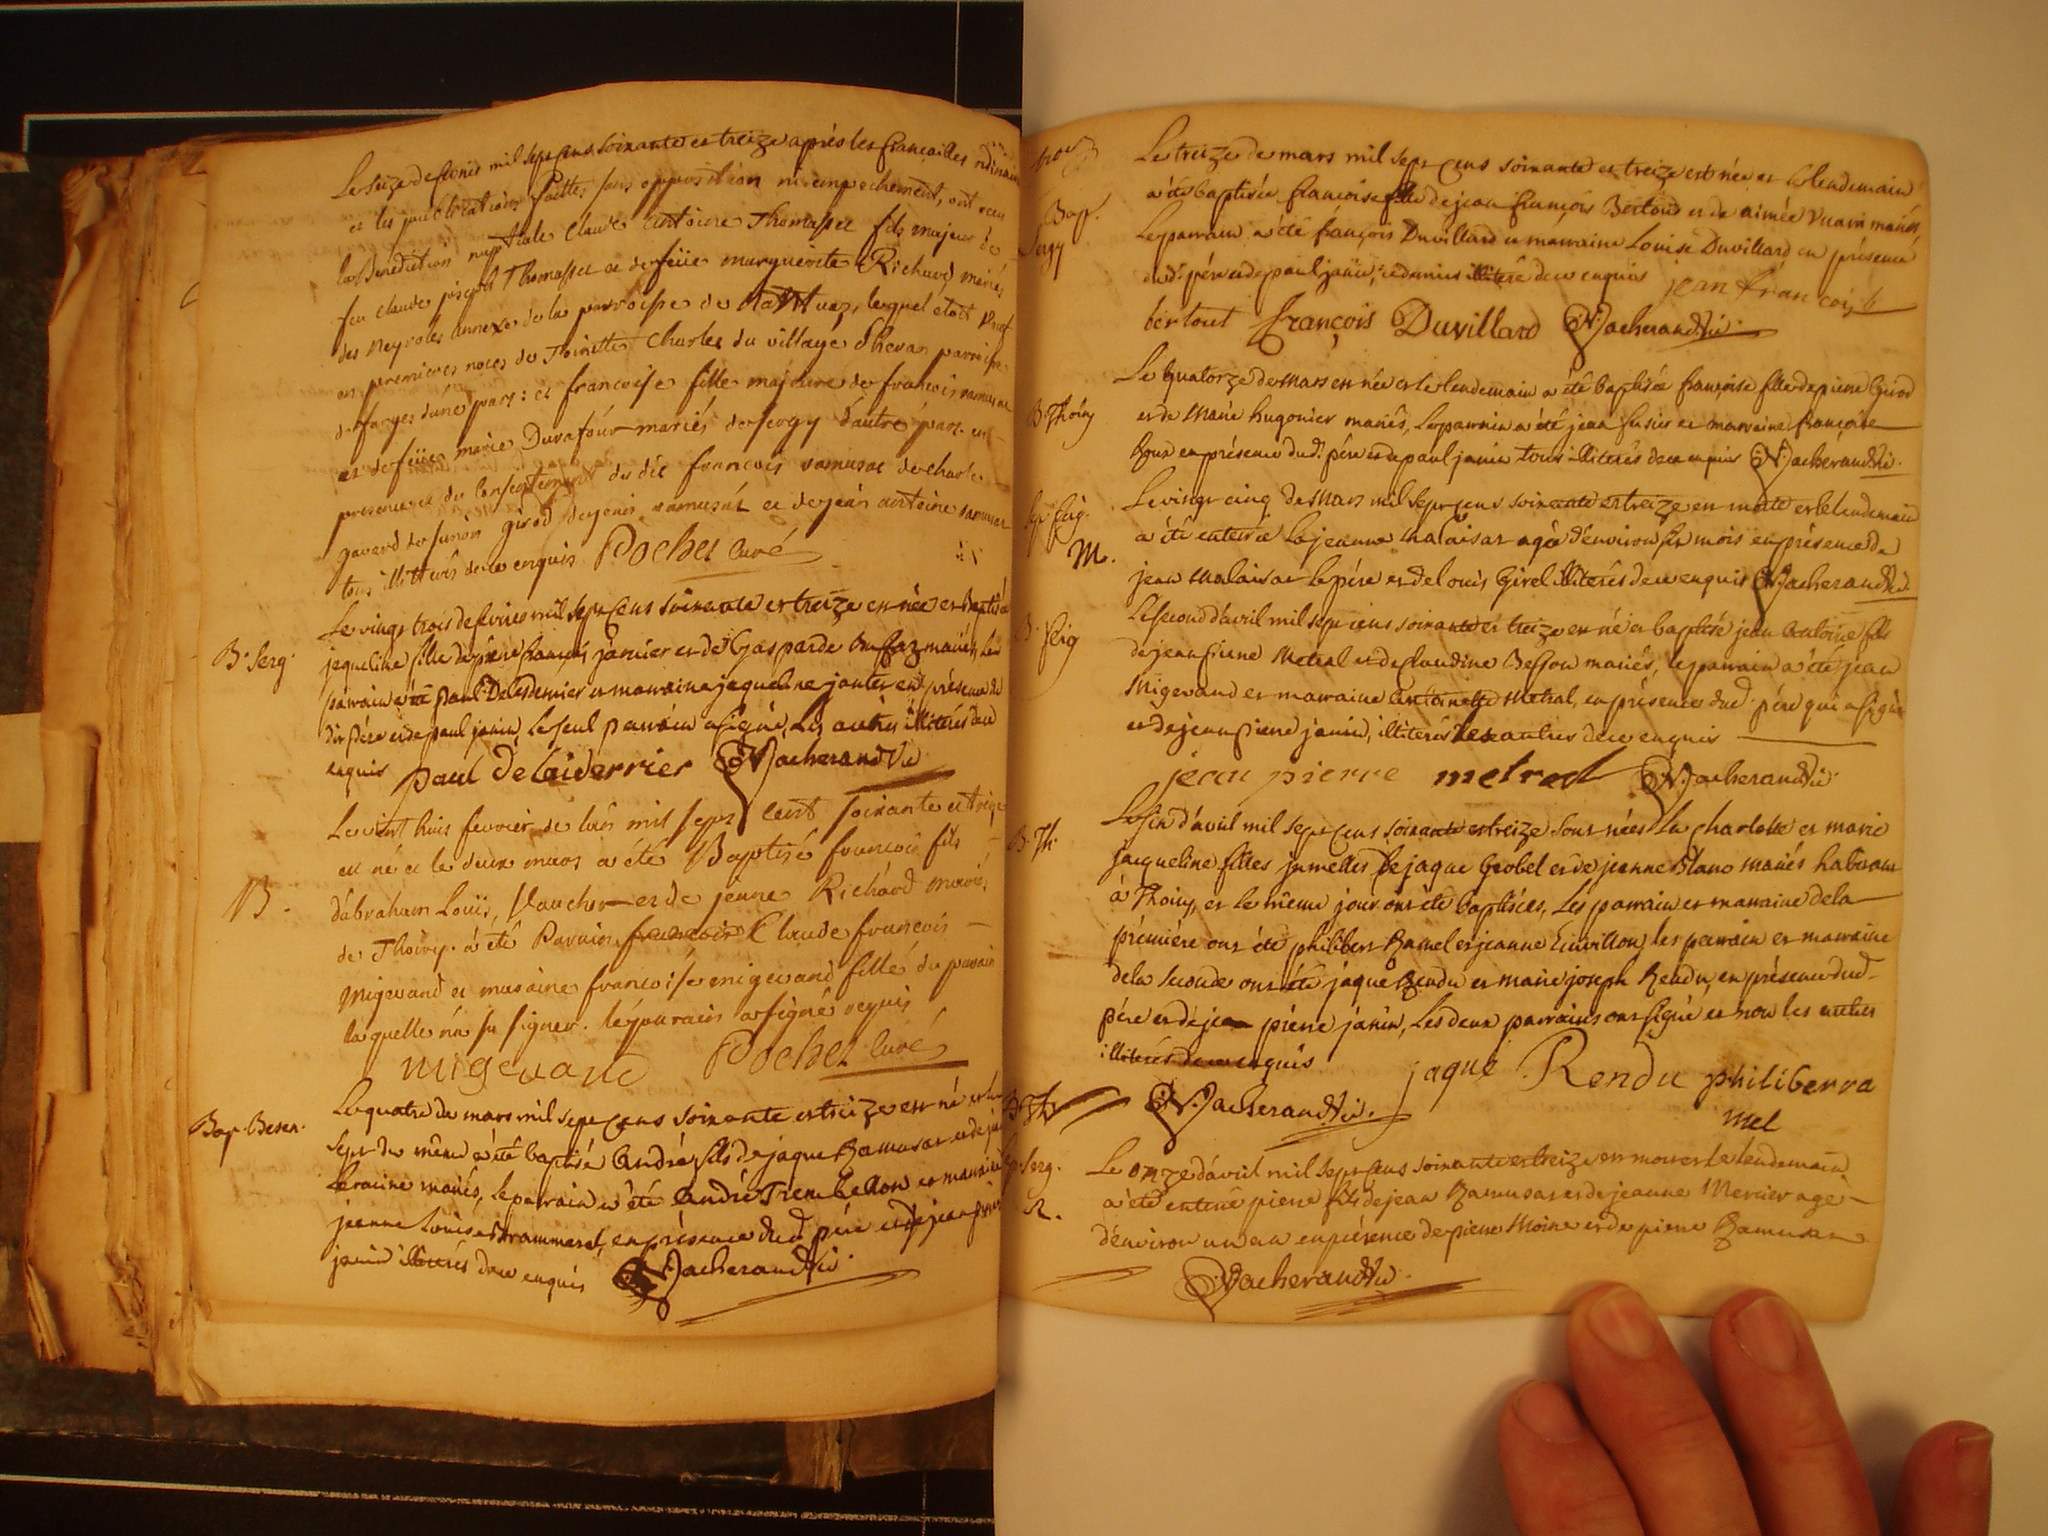 Le seize de fevrier mil sept cens soixante et treize après les fiançailles ordinaires
et les publications faittes sans opposition ni empechement, ont reçu
la Benediction nuptiale Claude antoine Thomasset fils majeur de
feu Claude joseph Thomasset et de feüe marguerite Richard mariés
des Neyroles annexe de la parroisse de lequel etoit veuf
en premieres noces de Toinette Charles du village d'hevan parroisse
de farges d'une part: et francoise fille majeure de francois ramusat
et de feüe marie Durafour mariés de sergy d'autre part en
presence et du consentement du dit francois ramusat de charle
gavard de simon girod de jenis ramusat et de jean antoine ramusat
tous illitterés de ce enquis Pochet curé
Le vingt trois de fevrier mil sept cens soixante et treize est née et Baptisée
B. Serg.
jaqueline fille de pierre francois janvier et de Gasparde mariés, Le
parrain a été paul Delesdernier et marraine jaqueline janter en présence du
dit Père et de paul janin, Le seul parrain a signé, Les autres illiterés de ce
enquis paul Delaiderrier Vacherand Vic
Le vint huit fevrier de l'an mil sept cent soixante et treize
est né et le deux mars a été Baptisé francois fils
B.
d'abraham Louis, Vaucher et de jeanne Richard mariés
de Thoiry. a été Parain francois Claude francois
Migevand et maraine francoise migevand fille du parain
laquelle n'a su signer. le parain a signé requis
migevand Pochet curé
Bap. Beten.
Le quatre de mars mil sept cens soixante et treize est né et le
sept du même a été baptisé André fils de jaque Ramusat et de
Leracine mariés, Le parrain a été andré Trembellon et marraine
jeanne Louise Brammerel, en présence dud. père et de jean pierre
janin illiterés de ce enquis Vacherand Vic
Le treize de mars mil sept cens soixante et treize est née et le lendemain
Bap.
a été baptisée françoise fille de jean françois Bertout et de aimée Vuarin mariés,
Sergy
Le parrain a été françois Duvillard et marraine Louise Duvillard en présence
dud. père et de paul janin, illiteré de ce enquis jean françois b
bertout françois Duvillard Vacherand Vic.
Le quatorze de mars est née et le lendemain a été baptisée françoise fille de pierre Girod
B. Thoiry
et de Marie hugonier mariés, Le parrain a été jean fusier et marraine françoise
Roux en présence dud. père et de paul janin tous illiterés de ce enquis Vacherand Vic.
Le vingt cinq de Mars mil sept cens soixante et treize est morte et le lendemain
M.
a été enterée la jeanne Malaisar agée d'environ six mois en présence de
jean Malaisar le père et de Louis Girel illiterés de ce enquis Vacherand Vic.
Le second d'avril mil sept cens soixante et treize est né et baptisé jean antoine fils
de jean pierre Metral et de claudine Besson mariés, le parrain a été jean
Migevand et marraine antoinette Metral, en présence dud. père qui a signé
et de jean pierre janin, illiterés les autres de ce enquis
jean pierre metral Vacherand Vic.
B. Th.
Le six d'avril mil sept cens soixante et treize sont nées la charlotte et marie
jacqueline filles jumelles de jaque Grobel et de jeanne Blanc mariés habitans
à Thoiry, et le même jour ont été baptisées, Les parrain et marraine de la
première ont été philibert Ramel et jeanne les parrain et marraine
de la seconde ont été jaque Rendu et marie joseph Rendu, en présence dud.
père et de jean pierre janin, Les deux parrains ont signé et non les autres
illiterés de ce enquis jaque Rendu philiberra
Vacherand Vic. mel
Serg.
Le onze d'avril mil sept cens soixante et treize est mort et le lendemain
a été enterré pierre fils de jean Ramusat et de jeanne Mercier agé
d'environ un an en présence de pierre Moine et de pierre Ramusat
Vacherand Vic.